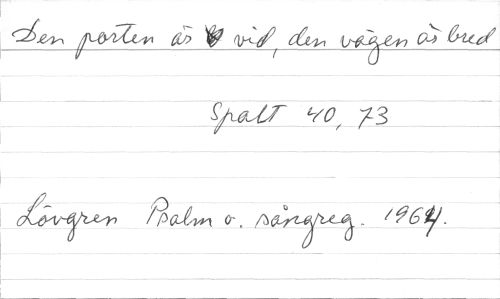 Den porten är vid, den vägen är bred
Spalt 40, 73
Lövgren Psalm o. sångreg. 1964.